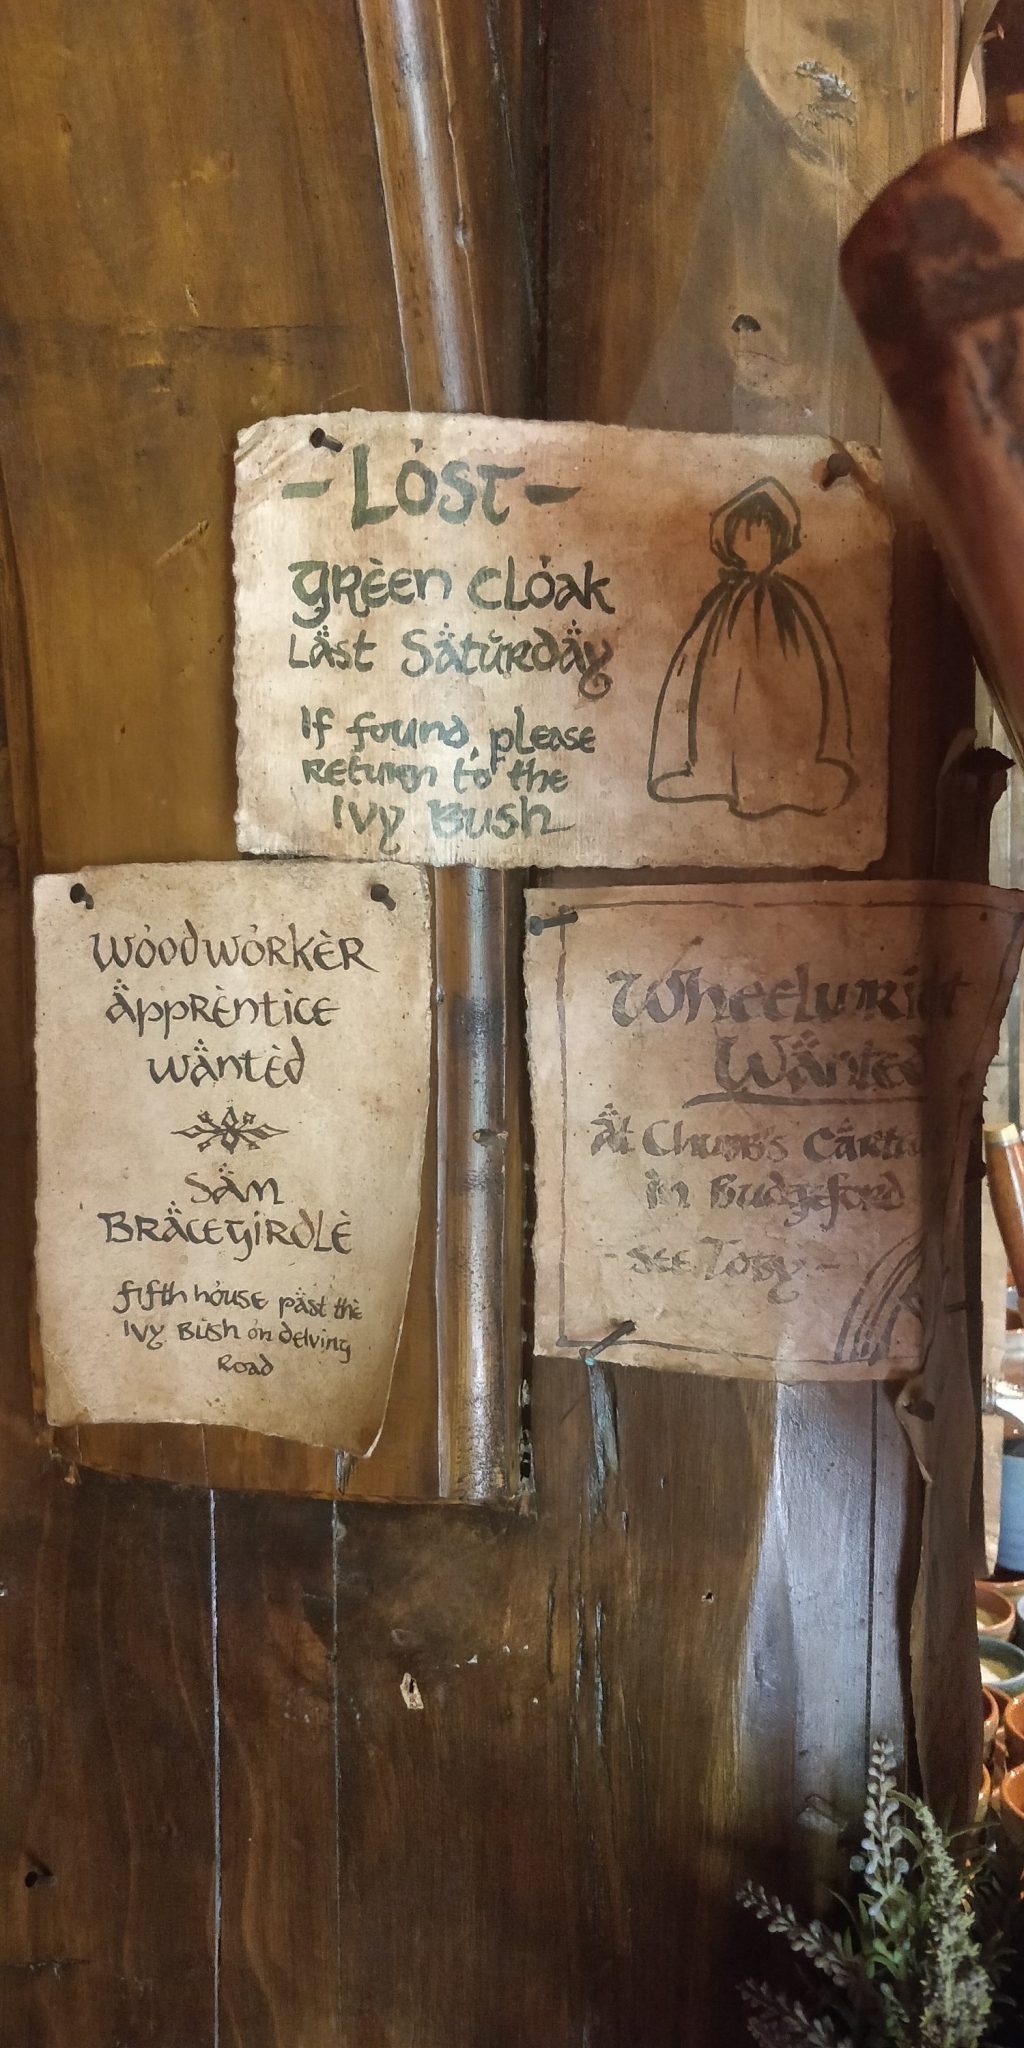 - LOST -
GREEN CLOAK
LAST SATURDAY
If found, please
return to the
Ivy Bush
WOODWORKER
APPRENTICE
WANTED
SAM
BRACEGIRDLE
fifth house past the
Ivy Bush on delving
Road
Wanted
At Chubb's
in Budgeford
- see Toby -